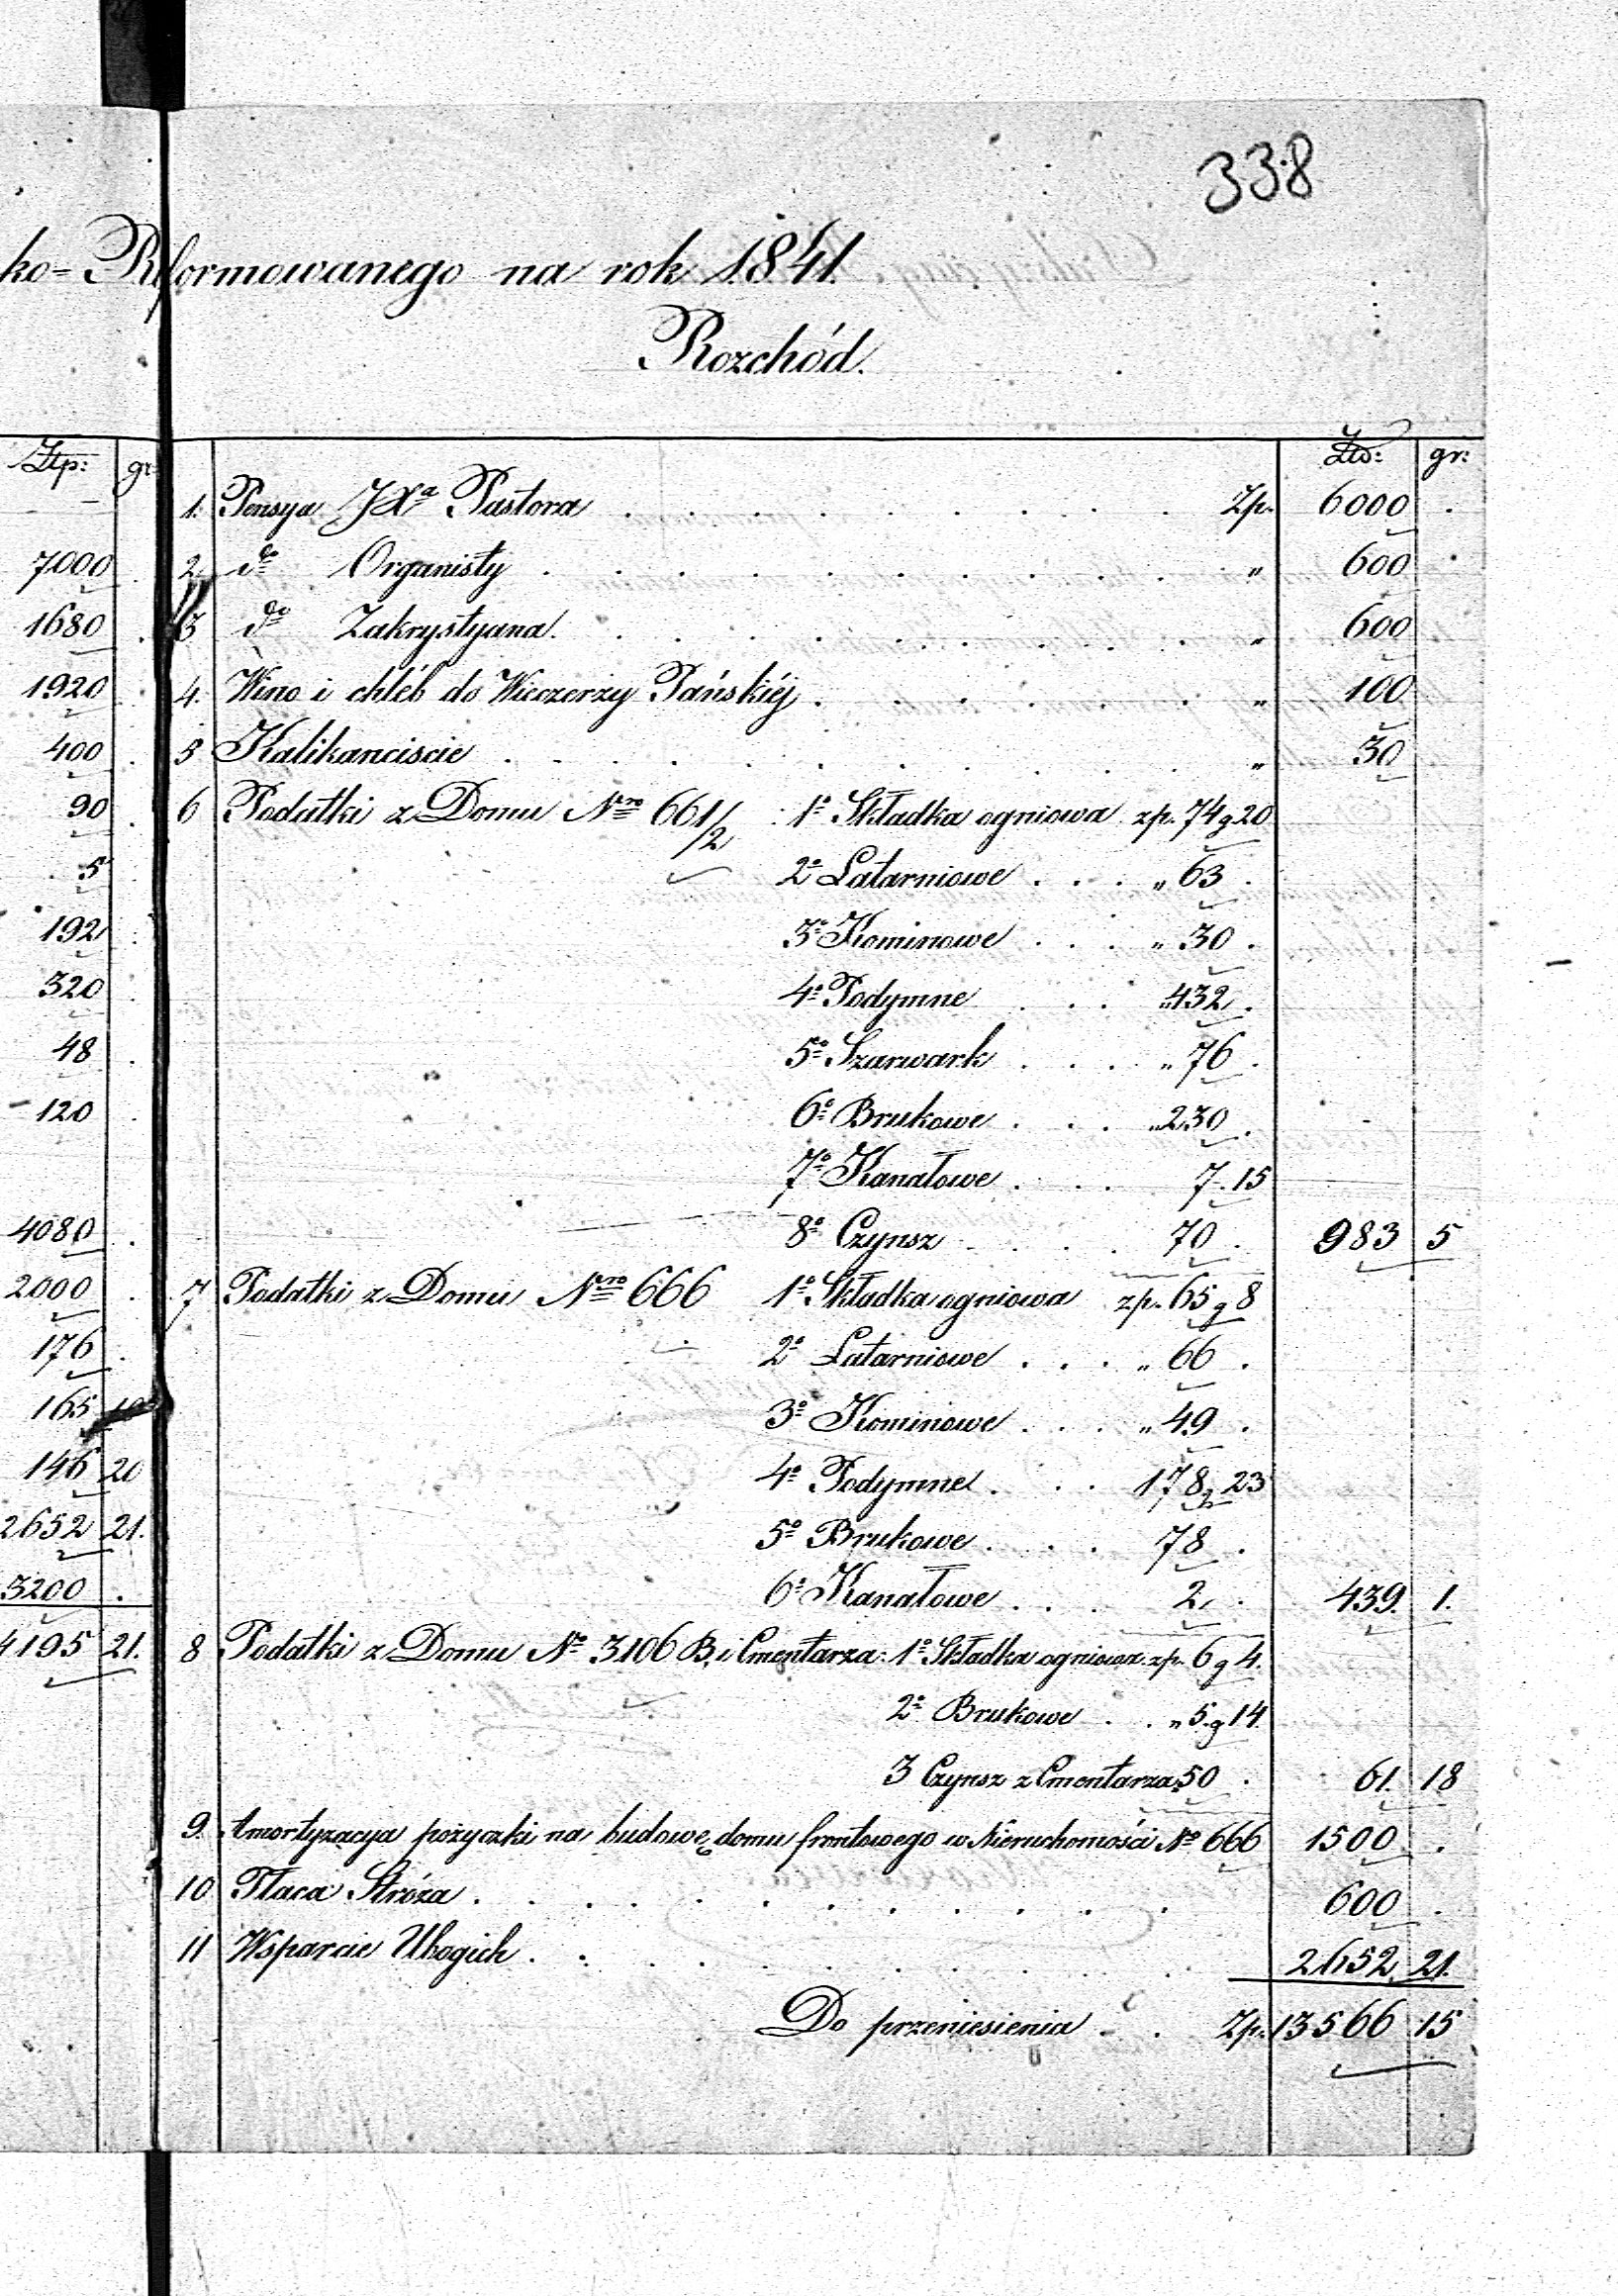 338
ko=Reformowanego na rok 1841.
Rozchód.
Ztp: gr: Złp: gr:
— 1. Pensya JXa Pastora . . . Zp. 6000 .
7000 . 2. do Organisty . . . " 600 .
1680 . 3 do Zakrystyana . . . " 600
1920 . 4. Wino i chléb do Wieczerzy Pańskiéj . . . " 100
400 . 5 Kalikanciscie . . . " 30
90 . 6 Podatki z Domu Nro 661/2 : 1o Składka ogniowa zp. 74 g 20
5 . 2o Latarniowe . . . " 63 .
192 . 3o Kominowe . . . " 30 .
320 . 4o Podymne . . . " 432 .
48 . 5o Szarwark . . . " 76 .
120 . 6o Brukowe . . . " 230 .
7o Kanałowe . . . 7. 15
4080 . 8o Czynsz . . . 70 . 983 5
2000 . 7 Podatki z Domu Nro 666 1o Składka ogniowa zp. 65 g 8
176 . 2o Latarniowe . . . " 66 .
165 3o Kominowe . . . " 49 .
146 20 4o Podymne . . . 178 g 23
2652 21. 5o Brukowe . . . 78 .
3200 . 6o Kanałowe . . . 2 . 439. 1.
4195 21. 8 Podatki z Domu No 3106 B, i Cmentarza: 1o Składka ogniowa zp. 6 g 4.
2o Brukowe . . " 5. g 14.
3 Czynsz z Cmentarza 50 . 61. 18
9. Amortyzacya pożyczki na budowę domu frontowego w Nieruchomości No 666 1500 .
10 Płaca Stróża . . . 600 .
11 Wsparcie Ubogich . . . 2652. 21.
Do przeniesienia . . Zp. 13566 15